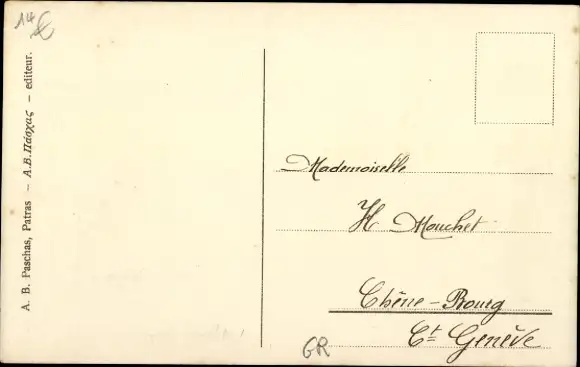 14 €
A. B. Paschas, Patras – Α.Β.Πάσχας – editeur.
Mademoiselle
H Mouchet
Chêne-Bourg
Ct Genève
GR